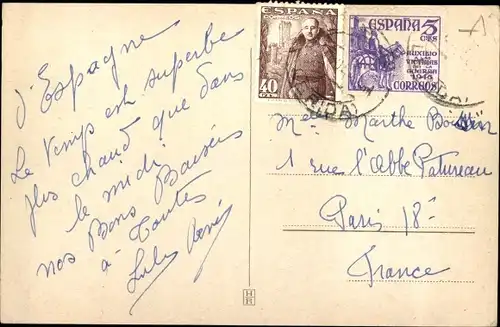 d'Espagne
Le Temps est superbe
plus chaud que dans
le midi.
nos Bons Baisers
à Toutes
ESPAÑA
40
CTS
ESPAÑA 5
CTS
AUXILIO
A LAS
VICTIMAS
DE LA
GUERRA
1946
CORREOS
Melle Marthe
1 rue l'Abbé Patureau
Paris 18e
France